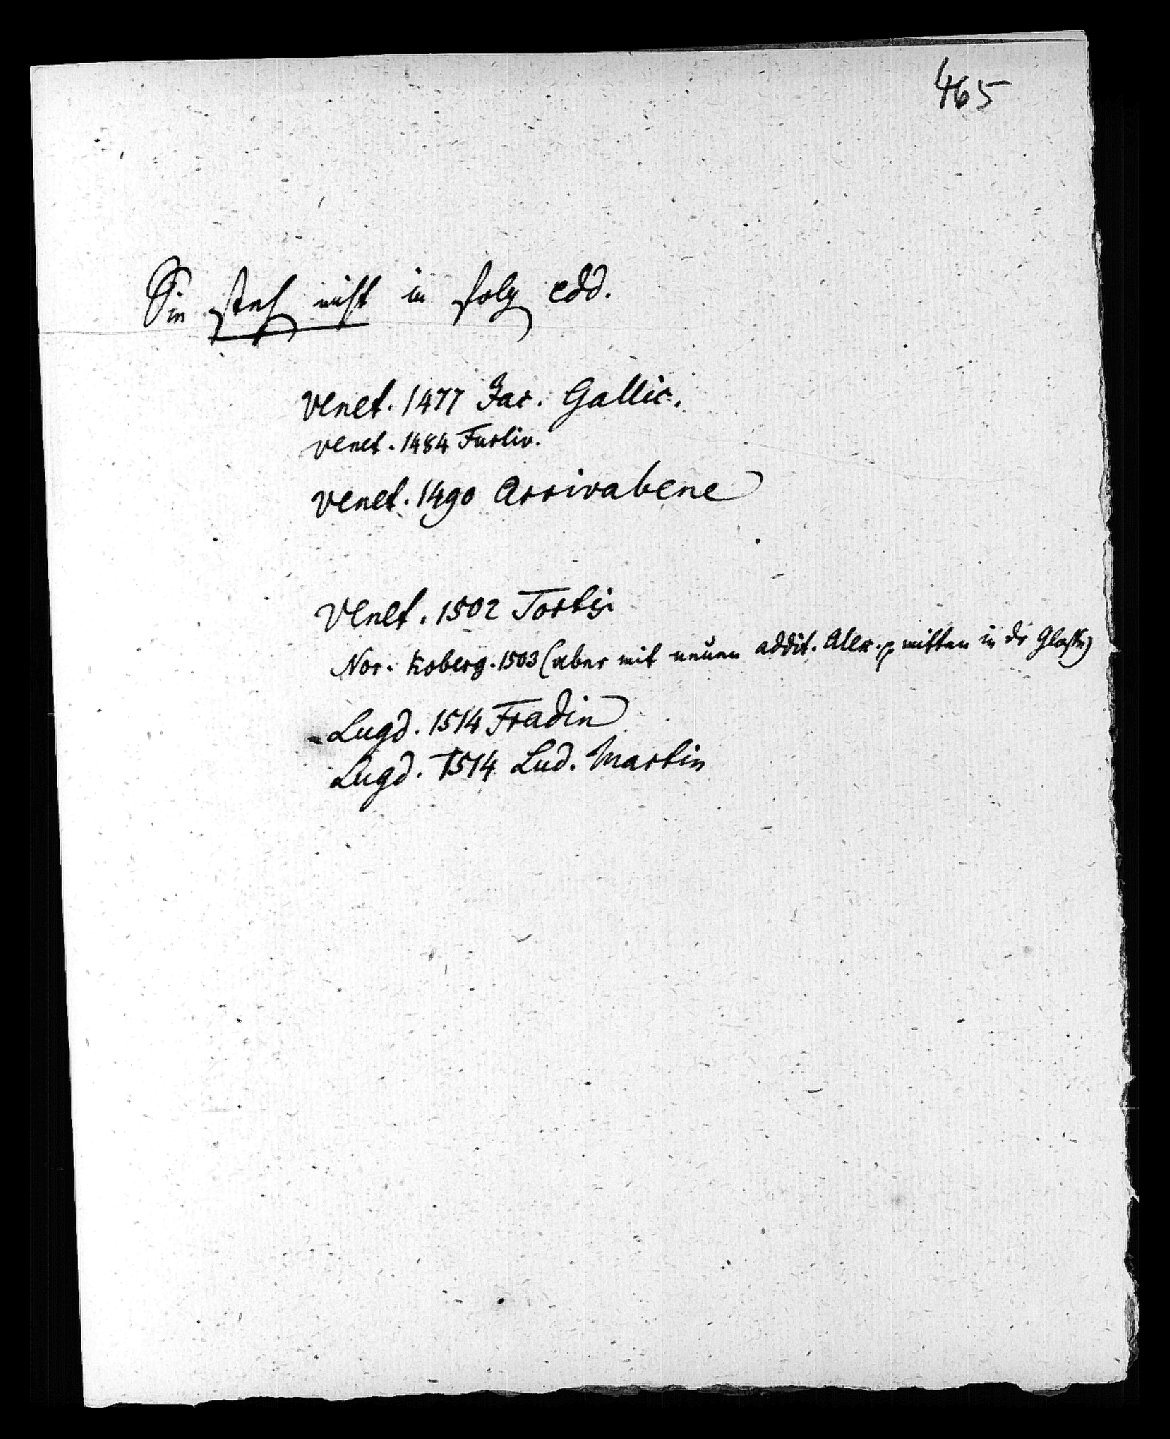 465
Sie steh nicht in folg edd.
Venet. 1477 Jac. Gallic.
Venet. 1484 Forliv.
Venet. 1490 Arrivabene
Venet. 1502 Tortis.
Nor. Koberg. 1503 (aber mit neuen addit. Alex. p mitten in dr Glosse)
Lugd. 1514 Fradin
Lugd. 1514 Lud. Martin